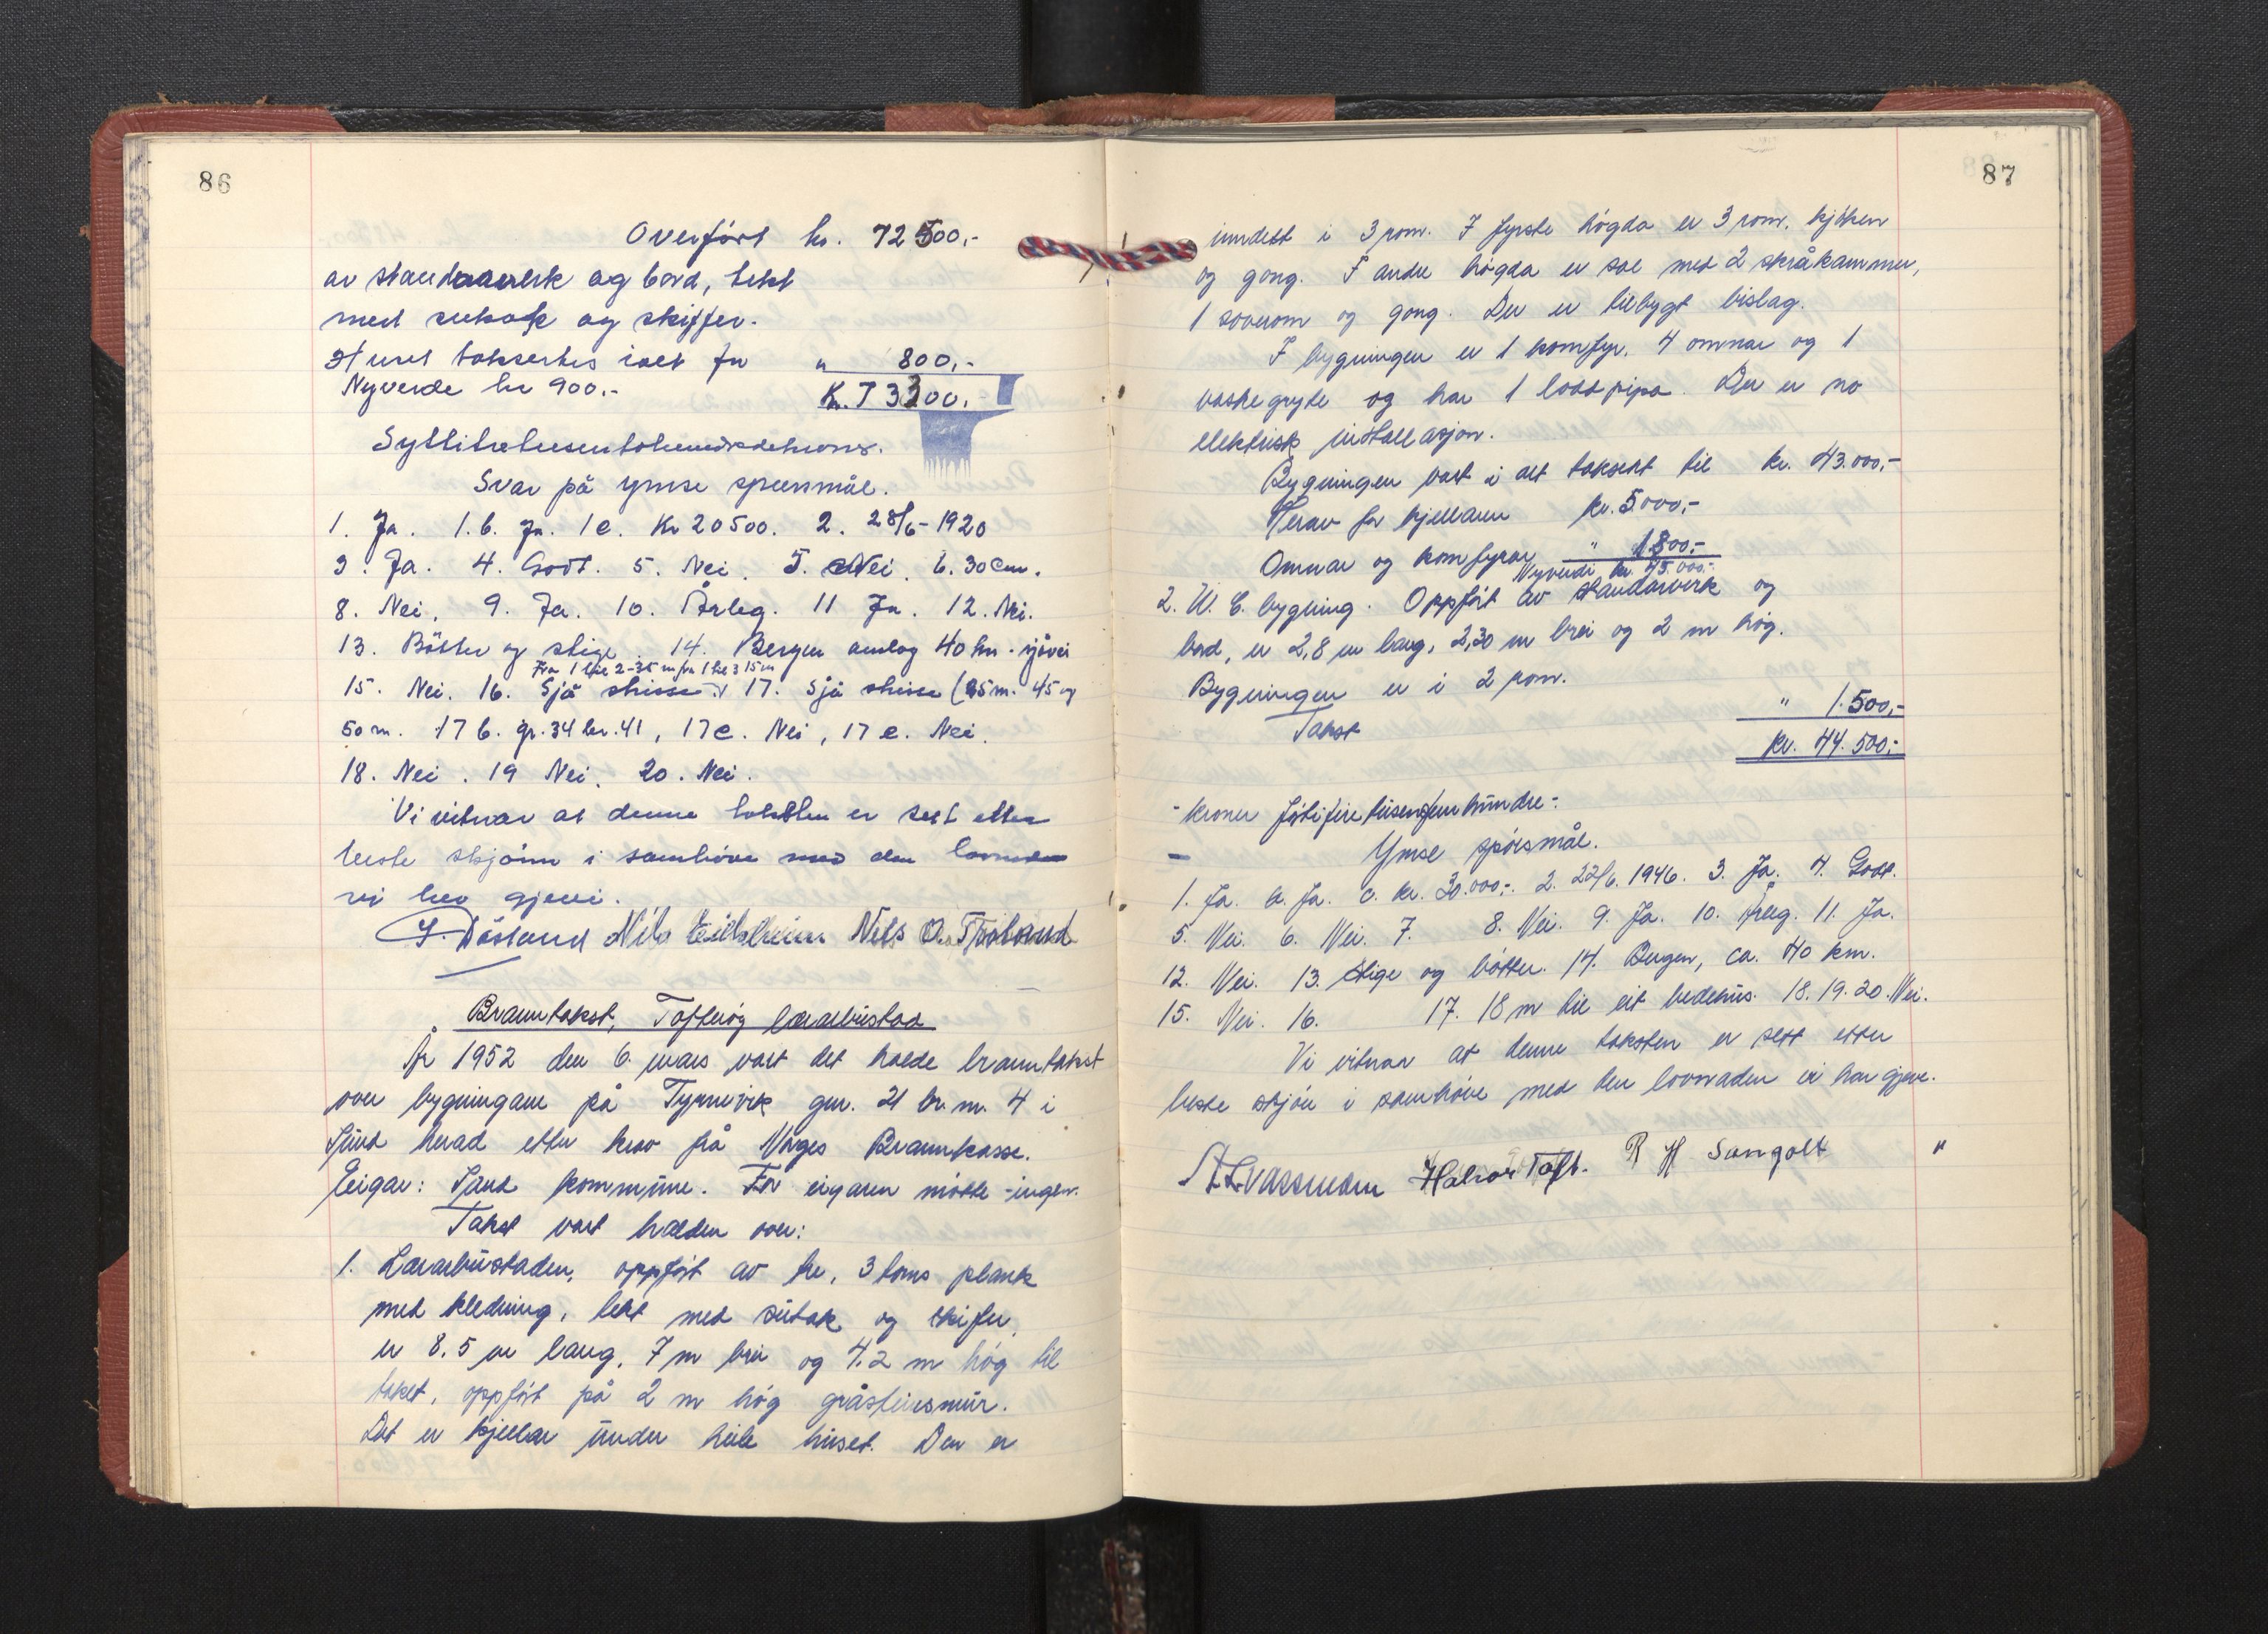 86
Overført kr. 72500,-
av standaverk og bord, tekt
med sutak og skiffer.
Huset taksertes ialt for " 800,-
Nyverde kr 900.- Kr. 73300.-
Syttitretusentrehundrekroner.
Svar på ymse spursmål.
1. Ja. 1.b. Ja. 1c. Kr 20500. 2. 28/6-1920
3. Ja. 4. Godt. 5. Nei. 5. Nei. 6. 30cm.
8. Nei. 9. Ja. 10. Årleg. 11 Ja. 12. Nei.
13. Bøtter og stige. 14. Bergen omlag 40 km. sjøvei
Fra 1 til 2-35 m fra 1 til 3 15 m
15. Nei. 16. Sjå skisse 17. Sjå skisse (25m. 45 og
50 m. 17 b. gr. 34 br. 41, 17c. Nei, 17 e. Nei.
18. Nei. 19 Nei. 20. Nei.
Vi vitnar at denne taksten er sett etter
beste skjønn i samhøve med den lovnaden
vi hev gjevi.
Nils Nils O. Tjoland
Branntakst, Tofterøy lærarbustad
År 1952 den 6. mars vart det halde branntakst
over bygningane på Tyrnevik gnr. 21 br. nr. 4 i
Sund herad etter krav frå Norges Brannkasse.
Eigar: Sund kommune. For eigaren møtte ingen.
Takst vart halden over:
1. Lærarbustaden, oppført av tre, 3 toms plank
med kledning, tekt med sutak og skifer,
er 8.5 m lang, 7 m brei og 4.2 m høg til
taket, oppført på 2 m høg gråsteinsmur.
Det er kjellar under heile huset. Den er
87
inndelt i 3 rom. I fyrste høgda er 3 rom, kjøken
og gong. I andre høgda er sal med 2 skråkammer,
1 soverom og gong. Der er tilbygt bislag.
I bygningen er 1 komfyr, 4 omnar og 1
vaskegryte og har 1 loddpipa. Der er no
elektrisk installasjon.
Bygningen vart i alt taksert til kr. 43.000,-
Herav for kjellaren kr. 5.000,-
Omnar og komfyrar " 1800,-
Nyverdi kr. 45.000.-
2. W.C. bygning. Oppført av standarverk og
bord, er 2,8 m lang, 2,30 m brei og 2 m høg.
Bygningen er i 2 rom.
Takst " 1.500,-
kr. 44.500,-
- kroner førtifiretusenfemhundre -.
Ymse spørsmål.
1. Ja. b. Ja. c. kr. 20.000,-. 2. 22/6. 1946. 3. Ja. 4. Godt.
5. Nei. 6. Nei. 7. 8. Nei. 9. Ja. 10. Årleg. 11. Ja.
12. Nei. 13. Stige og bøtter. 14. Bergen, ca. 40 km.
15. Nei. 16. 17. 18 m til eit bedehus. 18. 19. 20. Nei.
Vi vitnar at denne taksten er sett etter
beste skjøn i samhøve med den lovnaden vi har gjeve.
Halvor Toft. R H Sangolt "